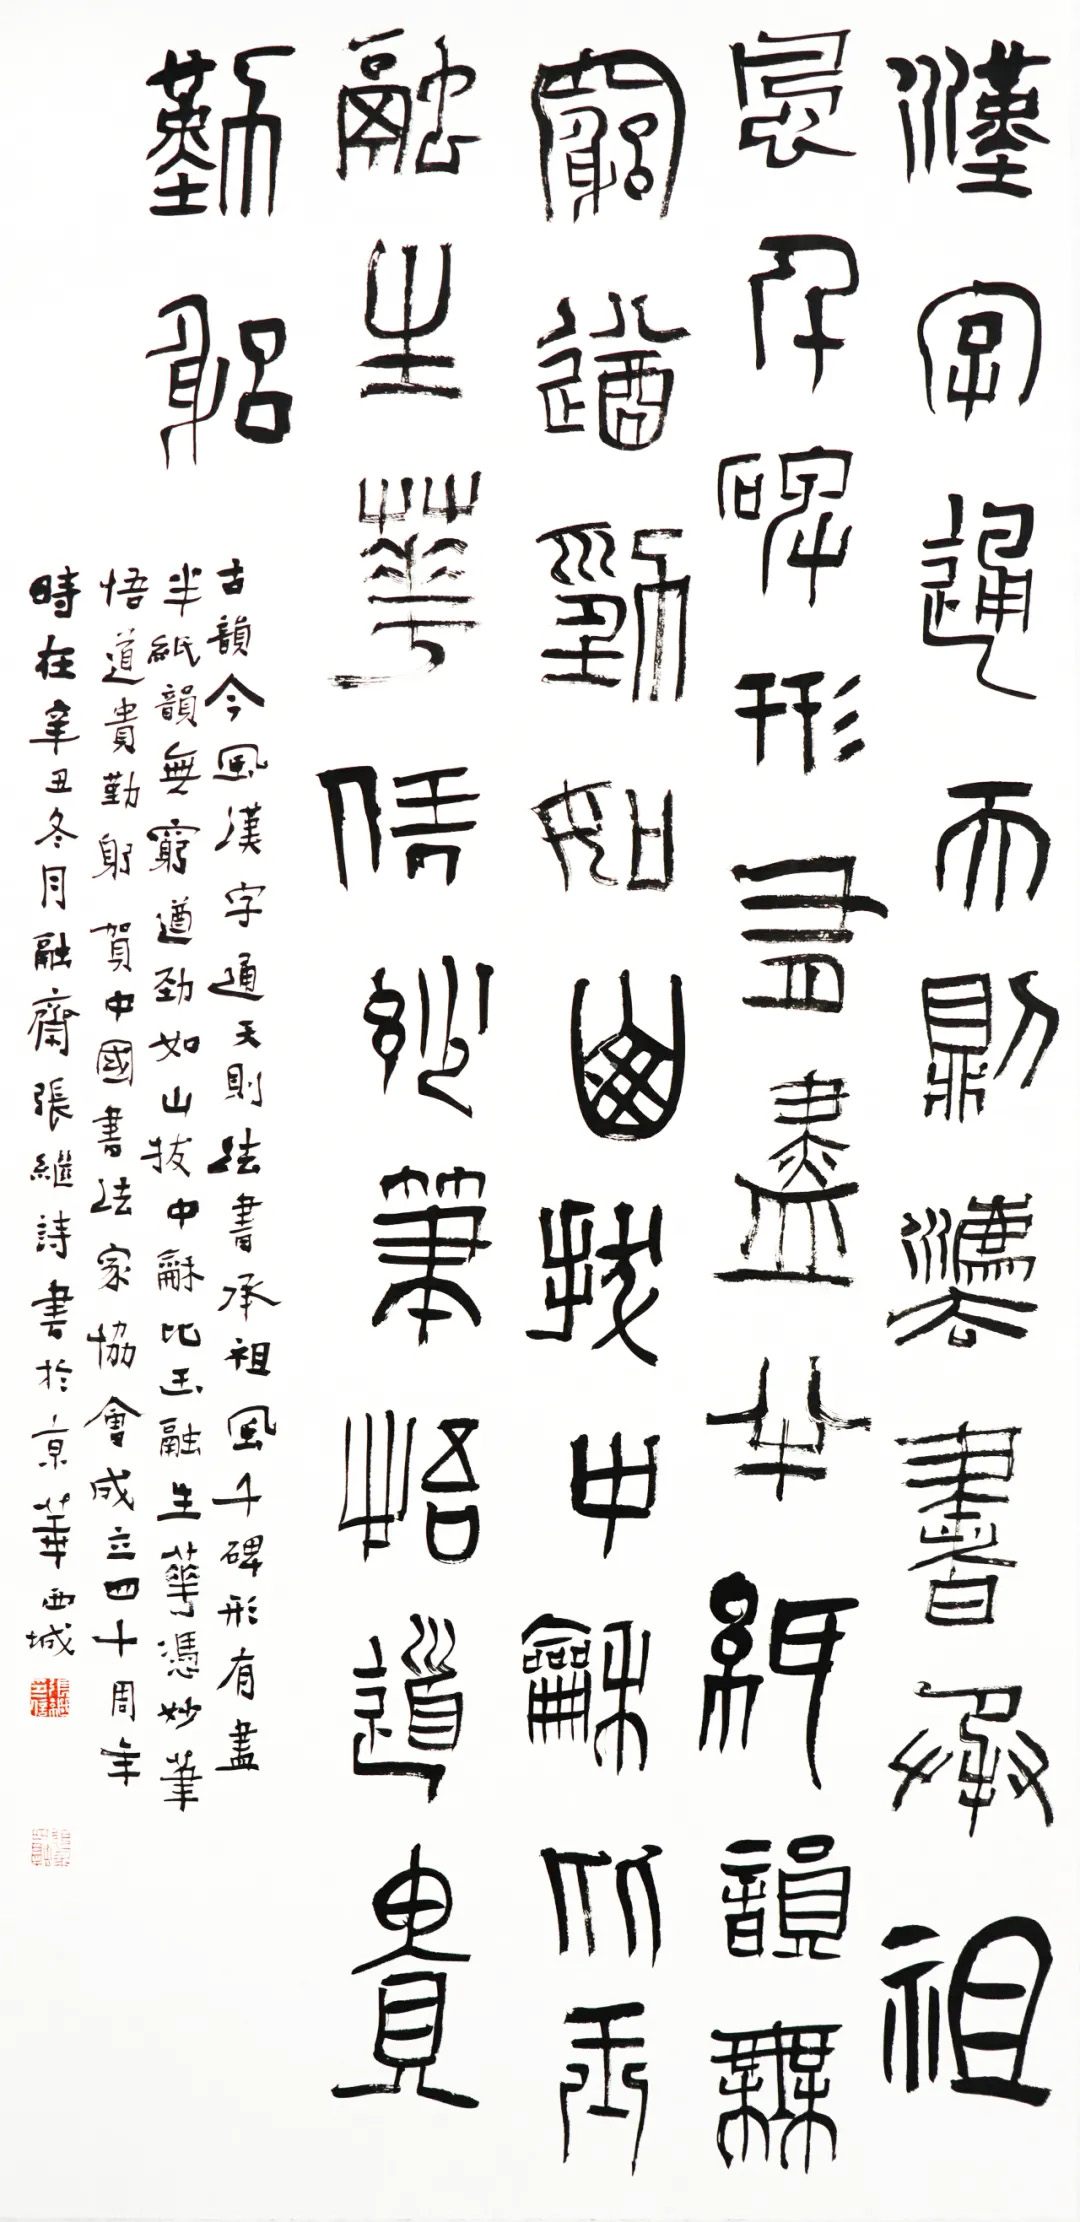 漢字通天則灋書承祖
風千碑形有盡半紙韻無
窮遒勁如山拔中龢比玉
融生華凭妙筆悟道貴
勤躬
古韻今風漢字通天則法書承祖風千碑形有盡
半紙韻無窮遒勁如山拔中龢比玉融生華憑妙筆
悟道貴勤躬 賀中國書法家協會成立四十周年
時在辛丑冬月融齋張繼詩書於京華西城